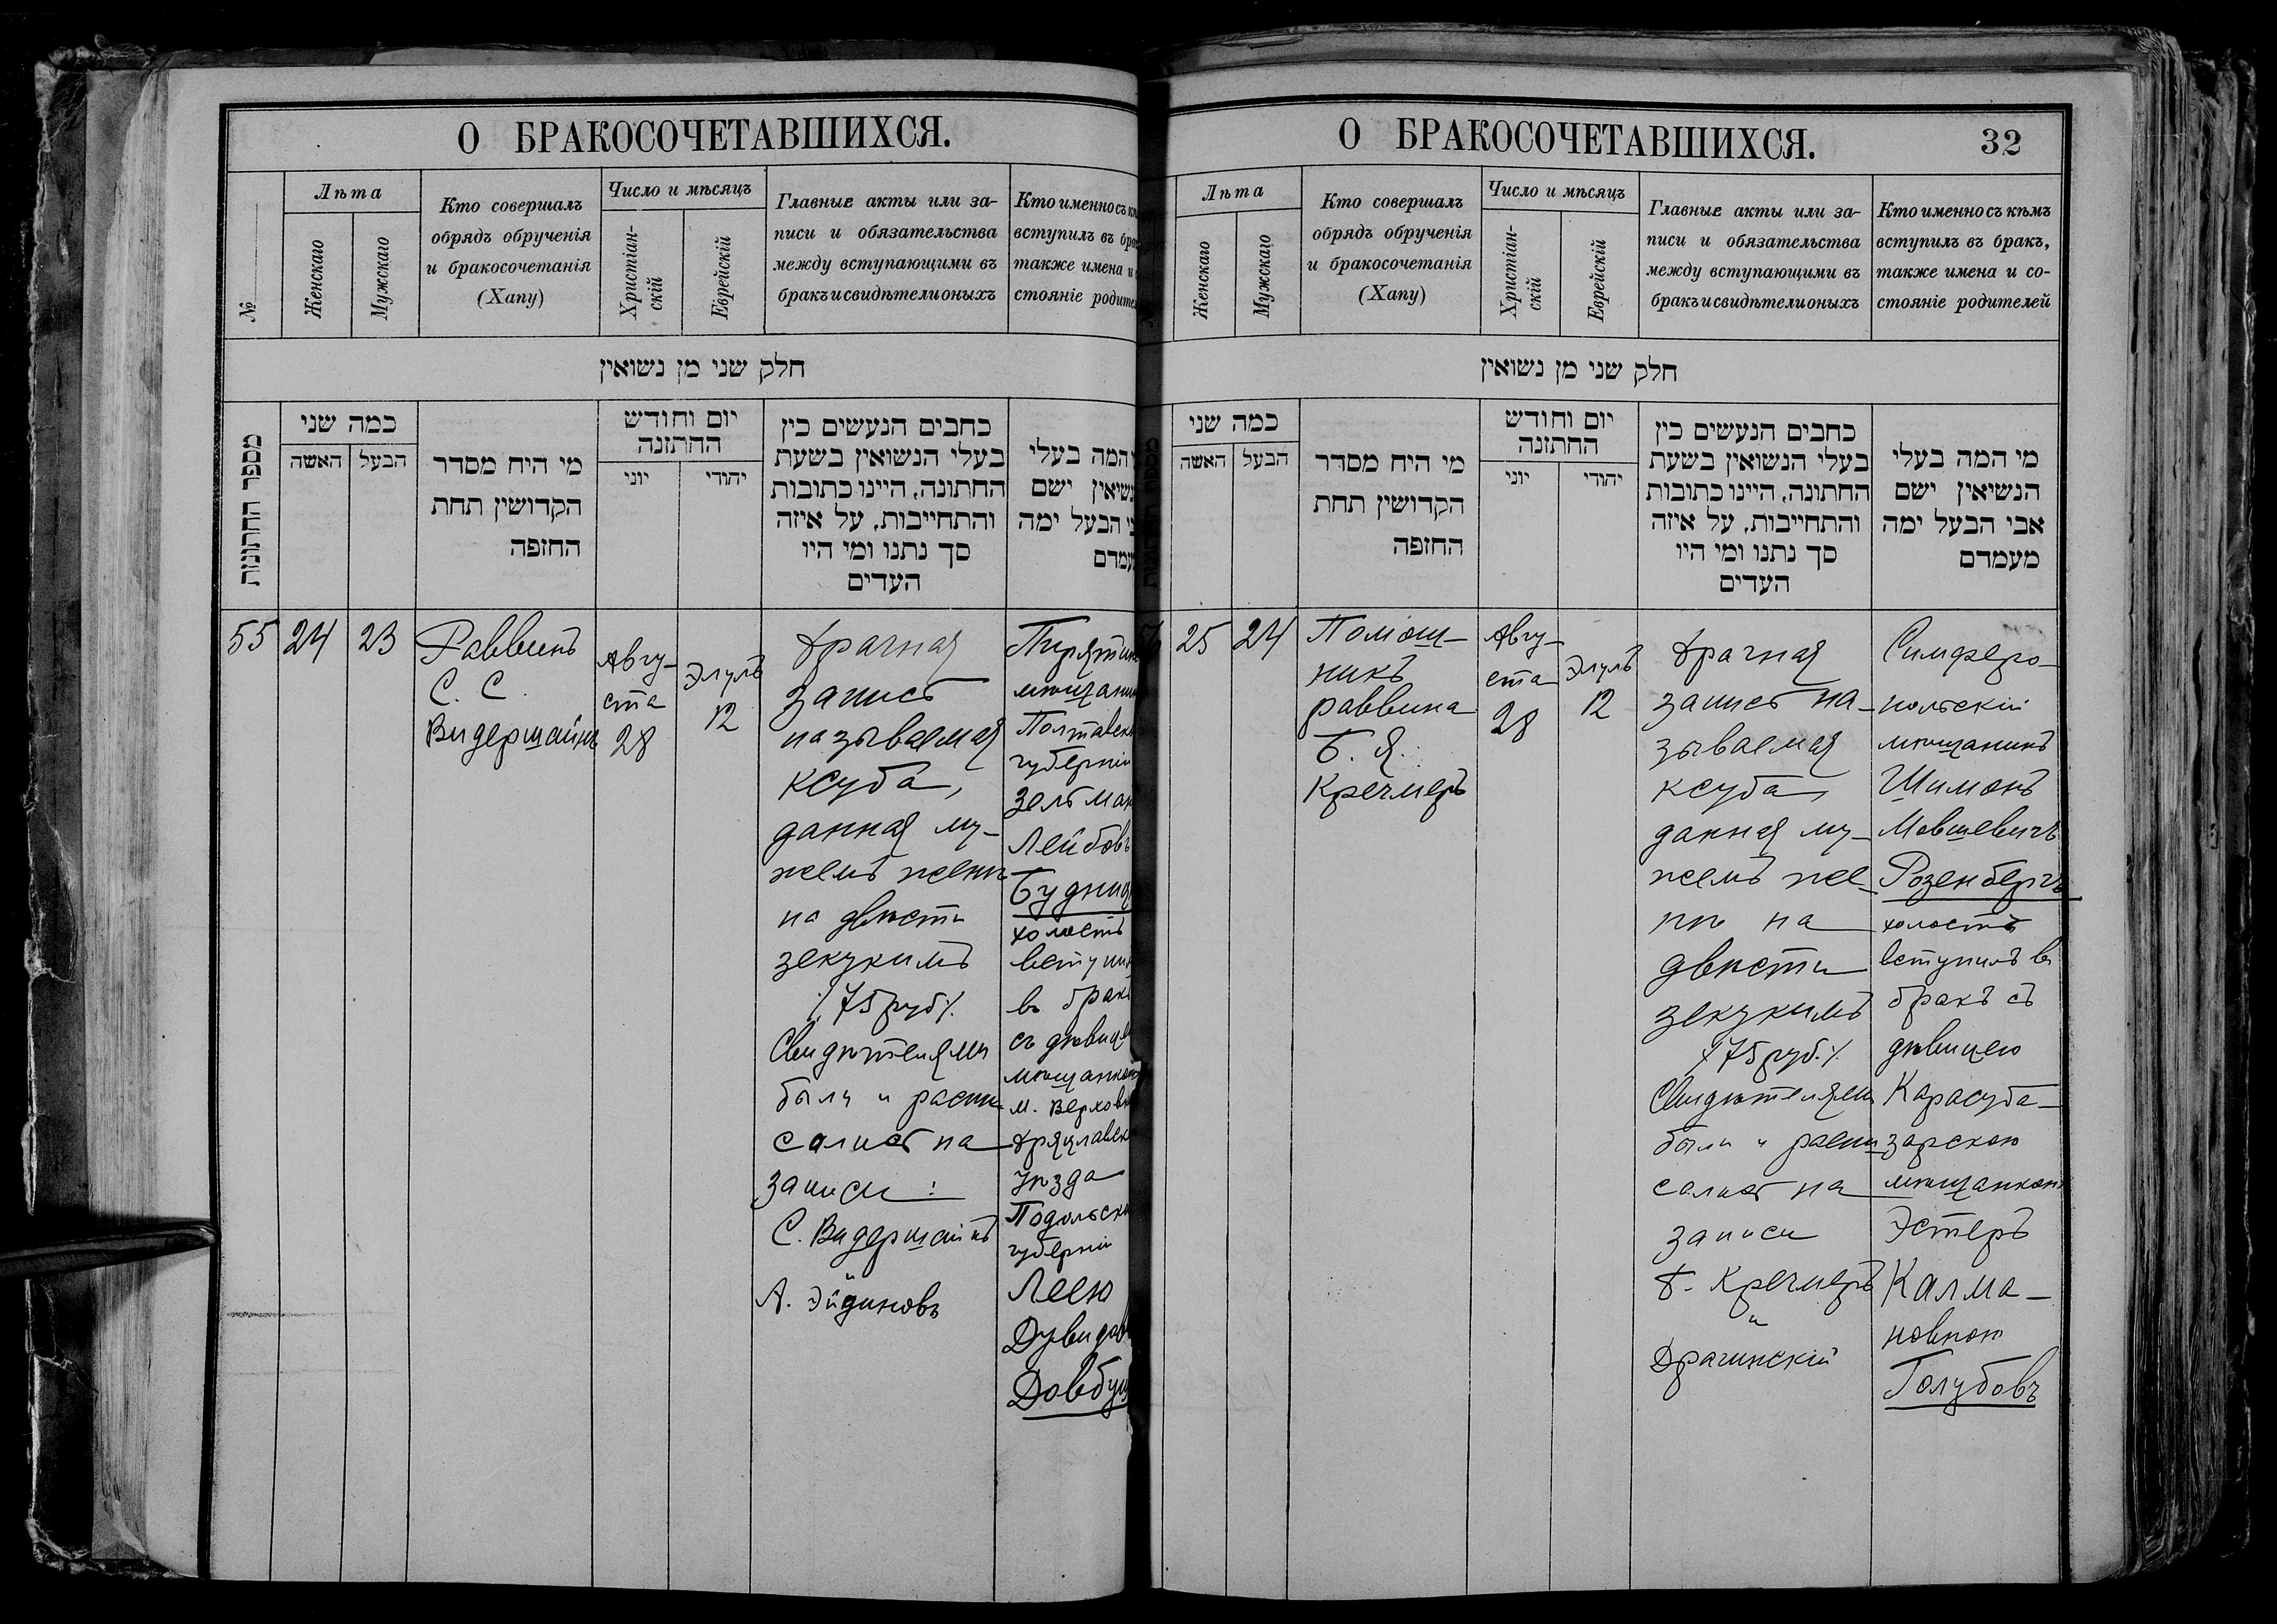 О БРАКОСОЧЕТАВШИХСЯ.
№
Лѣта
Женскаго
Мужскаго
Кто совершалъ
обрядъ обрученія
и бракосочетанія
(Хапу)
Число и мѣсяцъ
Христіан-
скій
Еврейскій
Главные акты или за-
писи и обязательства
между вступающими въ
бракъ и свидѣтели оныхъ
Кто именно съ
вступилъ въ
также имена и
стояніе
חלק שני מן נשואין
מספר החתונות
כמה שני
האשה
הבעל
מי היח מסדר
הקדושין תחת
החופה
יום וחודש
החתונה
יוני
יהודי
כתבים הנעשים בין
בעלי הנשואין בשעת
החתונה, היינו כתובות
והתחייבות, על איזה
סך נתנו ומי היו
העדים
המה בעלי
ישם
הבעל ימה
55
24
23
Раввинъ
С. С.
Видершайнъ
Авгу-
ста
28
Элулъ
12
Брачная
запись
называемая
ксуба,
данная му-
жемъ женѣ
на двѣсти
зекукимъ
/.75 руб./.
Свидѣтелями
были и распи-
сались на
записи:
С. Видершайнъ
и
А. Эйдиновъ
губерніи
холостъ
въ
съ
м.
уѣзда
губерніи
Леею
О БРАКОСОЧЕТАВШИХСЯ.
32
Лѣта
Женскаго
Мужскаго
Кто совершалъ
обрядъ обрученія
и бракосочетанія
(Хапу)
Число и мѣсяцъ
Христіан-
скій
Еврейскій
Главные акты или за-
писи и обязательства
между вступающими въ
бракъ и свидѣтели оныхъ
Кто именно съ кѣмъ
вступилъ въ бракъ,
также имена и со-
стояніе родителей
חלק שני מן נשואין
כמה שני
האשה
הבעל
מי היח מסדר
הקדושין תחת
החופה
יום וחודש
החתונה
יוני
יהודי
כתבים הנעשים בין
בעלי הנשואין בשעת
החתונה, היינו כתובות
והתחייבות, על איזה
סך נתנו ומי היו
העדים
מי המה בעלי
הנשיאין ישם
אבי הבעל ימה
מעמדם
25
24
Помощ-
никъ
раввина
Б. Я.
Кречмеръ
Авгу-
ста
28
Элулъ
12
Брачная
запись на-
зываемая
ксуба,
данная му-
жемъ же-
нѣ на
двѣсти
зекукимъ
/.75 руб./.
Свидѣтелями
были и распи-
сались на
записи
Б. Кречмеръ
и
Драгинскій
Симферо-
польскій
мѣщанинъ
Шимонъ
Мовшевичъ
Розенбергъ
холостъ
вступилъ въ
бракъ съ
дѣвицею
Карасуба-
зарскою
мѣщанкою
Эстеръ
Калма-
новною
Голубовъ